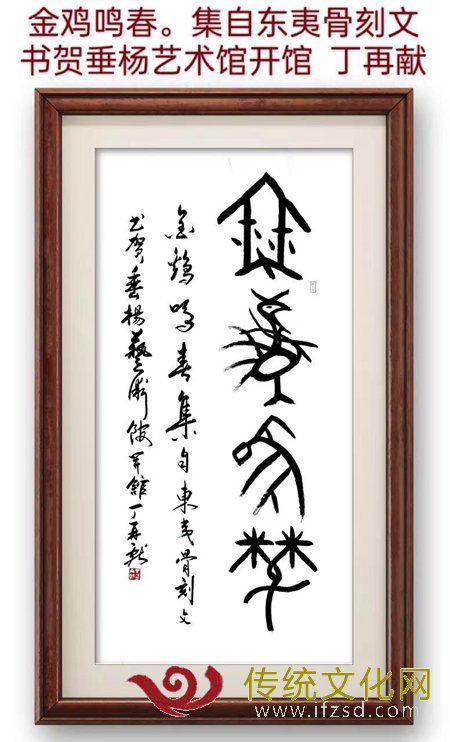 金鸡鸣春。集自东夷骨刻文
书贺垂杨艺术馆开馆 丁再献
金鸡鸣春
金鸡鸣春集自東夷骨刻文
书贺垂楊藝術馆开館丁再献
传统文化网
www.ifzsd.com